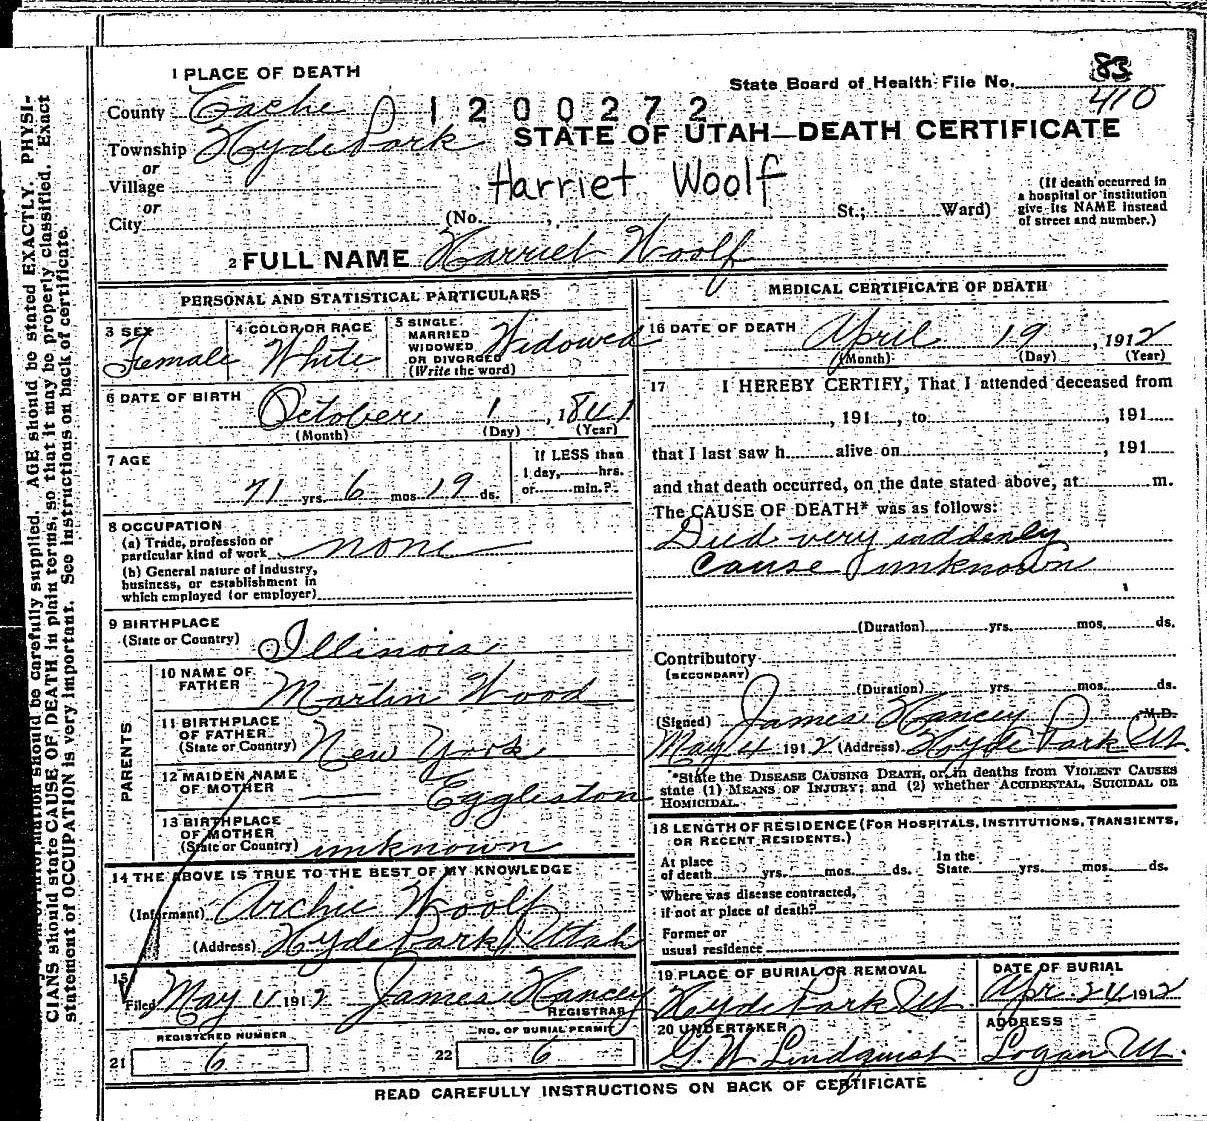 1 PLACE OF DEATH
State Board of Health File No. 83
410
County Cache
1200272
Township Hyde Park
STATE OF UTAH—DEATH CERTIFICATE
or
Village
Harriet Woolf
or
City
(No. , St.; Ward)
(If death occurred in
a hospital or institution
give its NAME instead
of street and number.)
2 FULL NAME Harriet Woolf
PERSONAL AND STATISTICAL PARTICULARS
3 SEX
Female
4 COLOR OR RACE
White
5 SINGLE
MARRIED
WIDOWED
OR DIVORCED
(Write the word)
Widowed
6 DATE OF BIRTH
October 1, 1841
(Month) (Day) (Year)
7 AGE
71 yrs. 6 mos. 19 ds.
If LESS than
1 day, hrs.
or min.?
8 OCCUPATION
(a) Trade, profession or
particular kind of work none
(b) General nature of industry,
business, or establishment in
which employed (or employer)
9 BIRTHPLACE
(State or Country) Illinois
PARENTS
10 NAME OF
FATHER Martin Wood
11 BIRTHPLACE
OF FATHER
(State or Country) New York
12 MAIDEN NAME
OF MOTHER —— Eggleston
13 BIRTHPLACE
OF MOTHER
(State or Country) unknown
14 THE ABOVE IS TRUE TO THE BEST OF MY KNOWLEDGE
(Informant) Archie Woolf
(Address) Hyde Park, Utah
15
Filed May 4 1912 James Hancey
REGISTRAR
REGISTERED NUMBER
21 6
NO. OF BURIAL PERMIT
22 6
MEDICAL CERTIFICATE OF DEATH
16 DATE OF DEATH April 19, 1912
(Month) (Day) (Year)
17 I HEREBY CERTIFY, That I attended deceased from
, 191 , to , 191
that I last saw h alive on , 191
and that death occurred, on the date stated above, at m.
The CAUSE OF DEATH* was as follows:
Died very suddenly
cause unknown
(Duration) yrs. mos. ds.
Contributory
(SECONDARY)
(Duration) yrs. mos. ds.
(Signed) James Hancey M.D.
May 4 1912 (Address) Hyde Park Ut.
*State the DISEASE CAUSING DEATH, or, in deaths from VIOLENT CAUSES
state (1) MEANS OF INJURY; and (2) whether ACCIDENTAL, SUICIDAL OR
HOMICIDAL.
18 LENGTH OF RESIDENCE (FOR HOSPITALS, INSTITUTIONS, TRANSIENTS,
OR RECENT RESIDENTS.)
At place
of death yrs. mos. ds.
In the
State yrs. mos. ds.
Where was disease contracted,
if not at place of death?
Former or
usual residence
19 PLACE OF BURIAL OR REMOVAL
Hyde Park Ut
DATE OF BURIAL
Apr. 24 1912
20 UNDERTAKER
G. W Lindquist
ADDRESS
Logan Ut.
READ CAREFULLY INSTRUCTIONS ON BACK OF CERTIFICATE
information should be carefully supplied. AGE should be stated EXACTLY. PHYSI-
CIANS should state CAUSE OF DEATH in plain terms, so that it may be properly classified. Exact
statement of OCCUPATION is very important. See instructions on back of certificate.